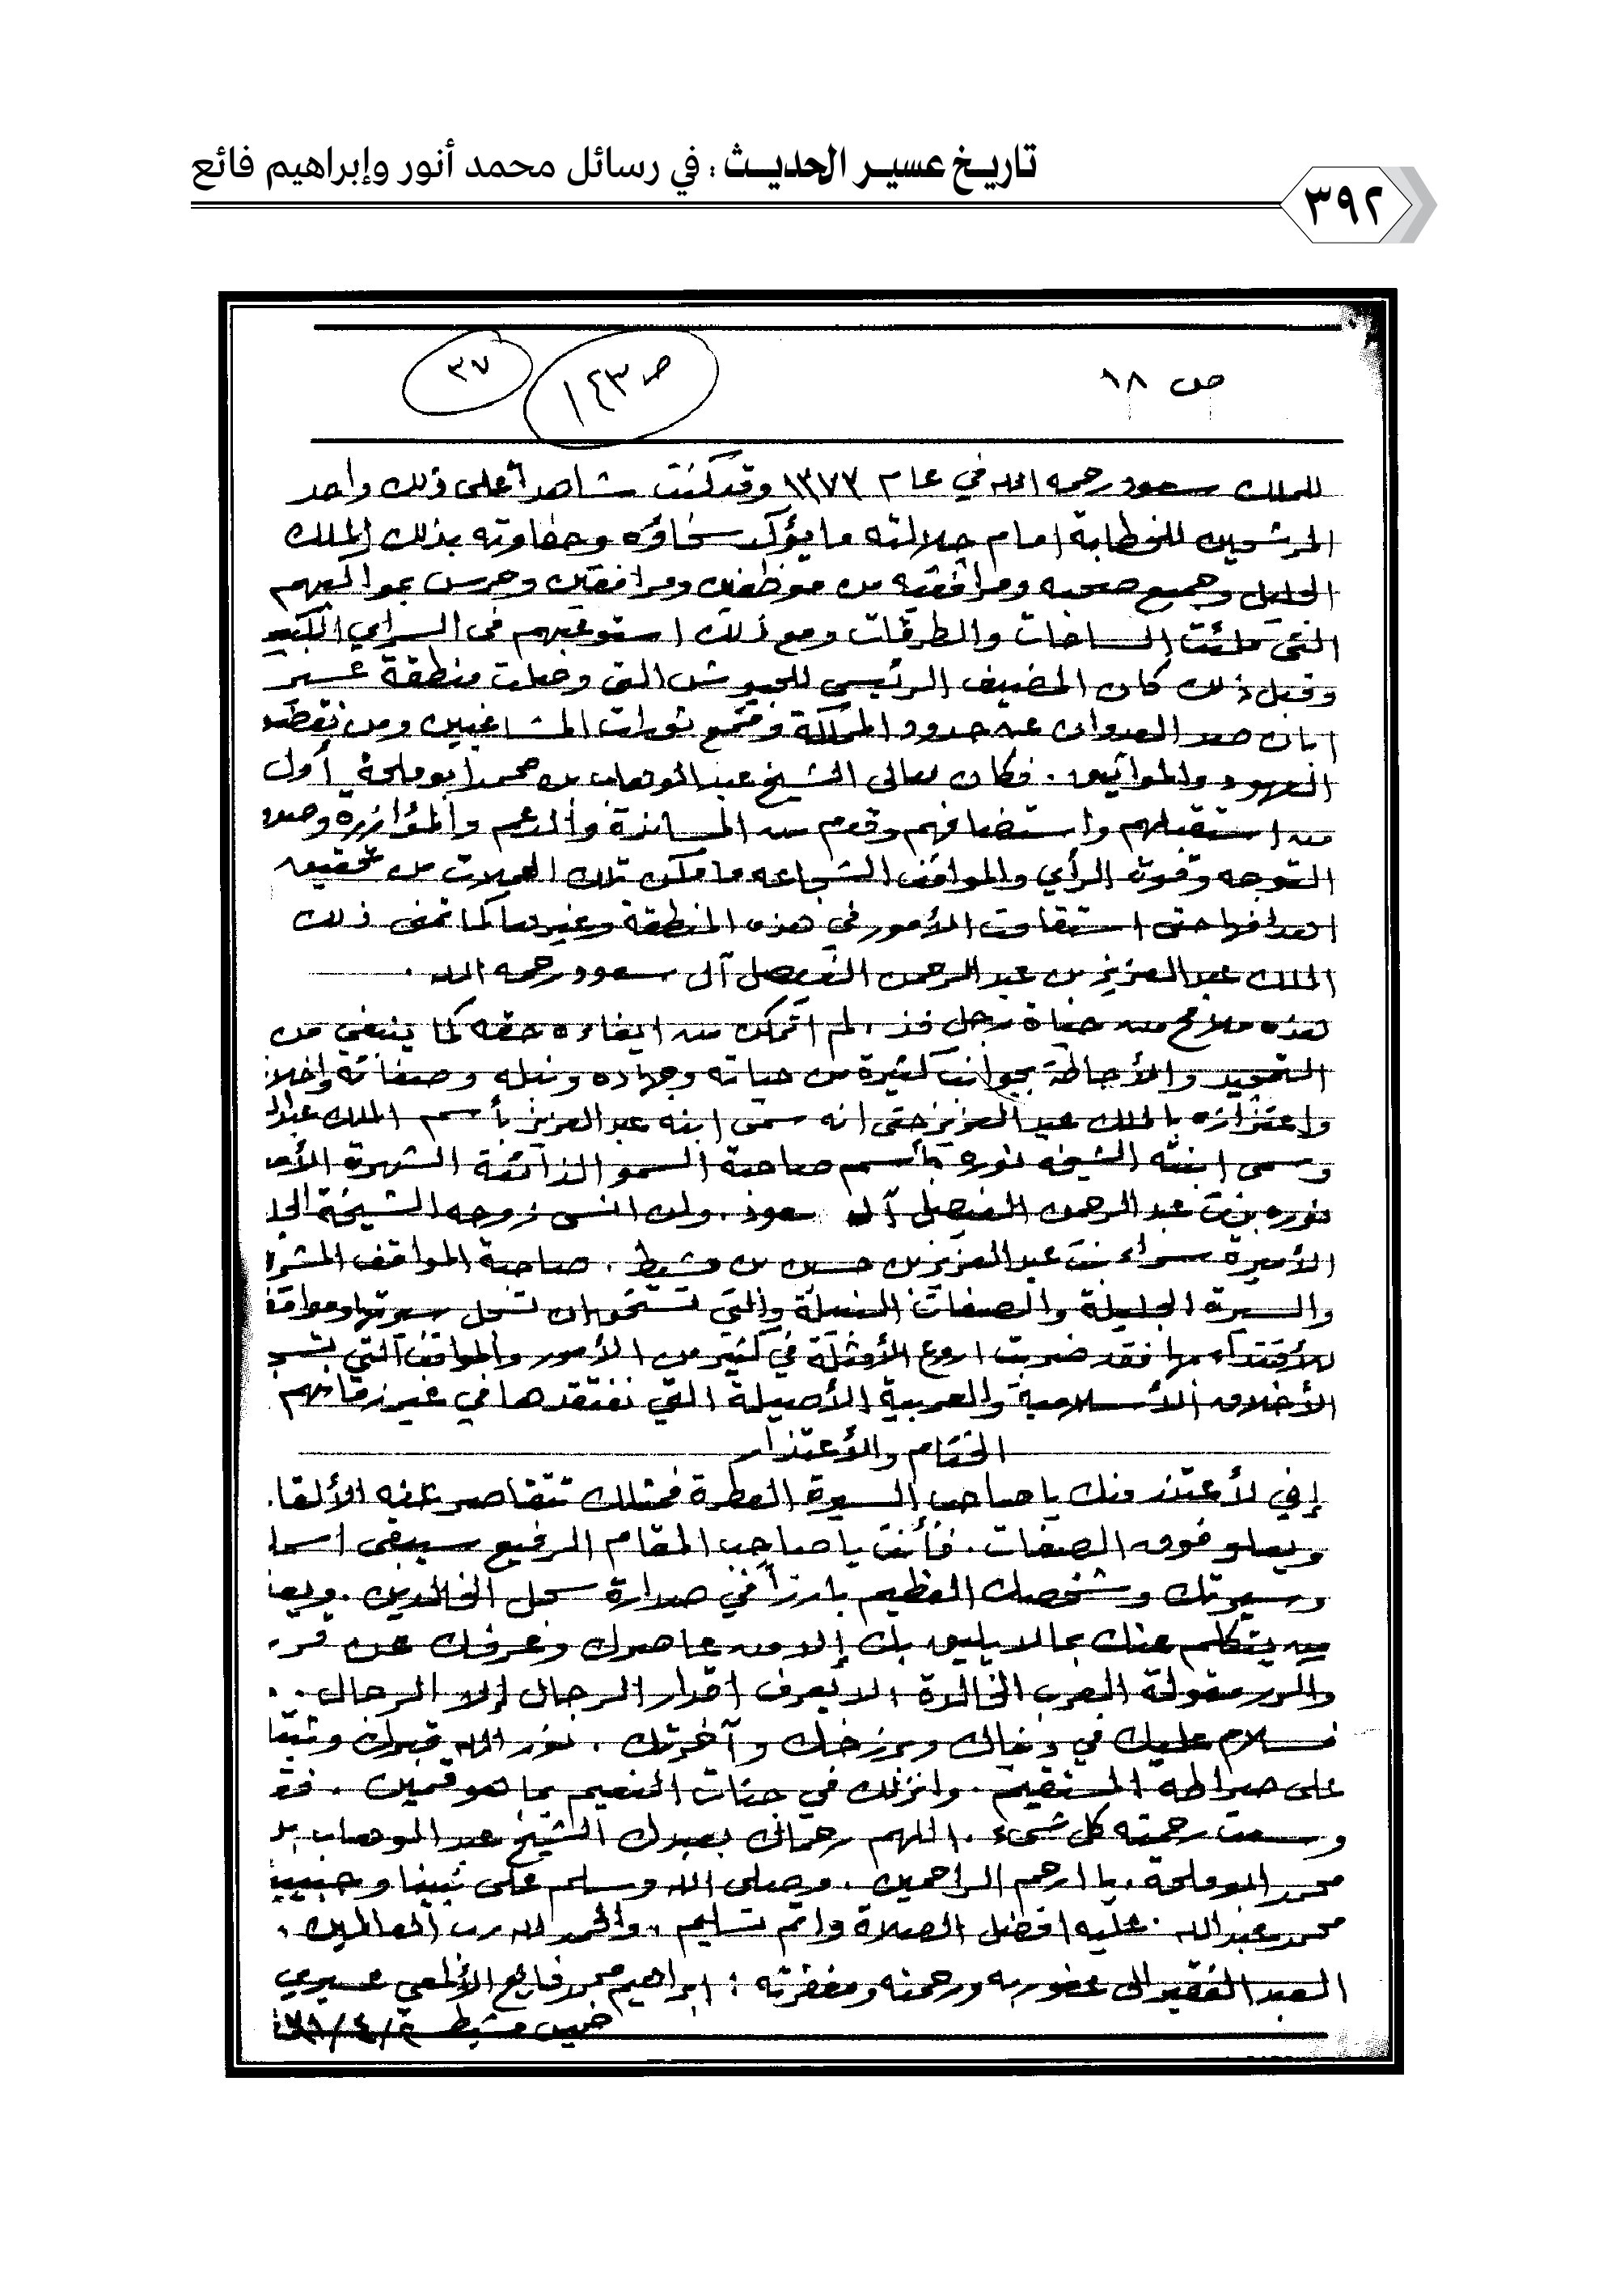 تاريخ عسير الحديث : في رسائل محمد أنور وإبراهيم فائع
٣٩٢
ص ١٨
ص ١٤٣
٣٧
للملك سعود رحمه الله في عام ١٣٧٣ وقد كنت شاهداً على ذلك وأحد
المرشحين للخطابة امام جلالته ما يؤكد سخاؤه وحفاوته بذلك الملك
الجليل وجميع صحبه ومرافقيه من موظفين ومرافقين وحرس بمواكبهم
التي ملئت الساحات والطرقات ومع ذلك استوعبهم في السراي الكبير
وقبل ذلك كان المضيف الرئيسي للجيوش التي وصلت منطقة عسير
ابان صد العدوان عن حدود المملكة وقمع ثورات المشاغبين ومن نقض
العهود والمواثيق . فكان معالي الشيخ عبد الوهاب بن محمد أبو ملحة أول
من استقبلهم واستضافهم وقدم من المساندة والدعم والمؤازرة وصدق
التوجه وقوة الرأي والمواقف الشجاعه ما مكن تلك الحملات من تحقيق
اهدافها حتى استقامت الأمور في هذه المنطقة وغيرها كما تمنى ذلك
الملك عبد العزيز بن عبد الرحمن الفيصل آل سعود رحمه الله .
هذه ملامح من حياة رجل فذ ، لم اتمكن من ايفاءه حقه كما ينبغي من
التمجيد والأحاطة بجوانب كثيرة من حياته وجهاده ونبله وصفاته واخلا
واعتزازه بالملك عبد العزيز حتى انه سمى ابنه عبد العزيز بأسم الملك عبد ال
وسمى ابنته الشيخه نوره بأسم صاحبة السمو الذائعة الشهرة الأمـ
نوره بنت عبد الرحمن الفيصل آل سعود . ولن انسى زوجه الشيخة الجلـ
الأميرة سراء بنت عبد العزيز بن حسين بن مشيط . صاحبة المواقف المشر
والسيرة الجليلة والصفات النبيلة والتي تستحق ان تسجل سيرتها ومواقـ
للأقتداء بها فقد ضربت اروع الأمثلة في كثير من الأمور والمواقف التي
الأخلاق الأسلامية والعربية الأصيلة التي نفتقدها في غير زمانهم
الختام والأعتذار
إني لأعتذر منك يا صاحب السيرة العطرة فمثلك تتقاصر عنه الألقا
ويعلو فوق الصفات . فأنت يا صاحب المقام الرفيع سيبقى اسمـ
وسيرتك وشخصك العظيم بارزاً في صدارة سجل الخالدين .
من يتكلم عنك بما لا يليق بك إلا من عاصرك وعرفك عن قر
مقولة العرب الخالدة لا يعرف اقدار الرجال إلا الرجال . .
فسلام عليك في دنياك وبرزخك وآخرتك . نور الله قبرك وثبتـ
على صراطه المستقيم . وانزلك في جنات النعيم بما هو قمين . فقـ
وسعت رحمته كل شيء . اللهم رحماك بعبدك الشيخ عبد الوهاب بـ
محمد ابو ملحة . يا ارحم الراحمين . وصلى الله وسلم على نبينا وحبيبنا
محمد بن عبد الله . عليه افضل الصلاة واتم تسليم ، والحمد لله رب العالمين .
العبد الفقير الى عفو ربه ورحمته ومغفرته : ابراهيم محمد فايع الألمعي عسيري
خميس مشيط